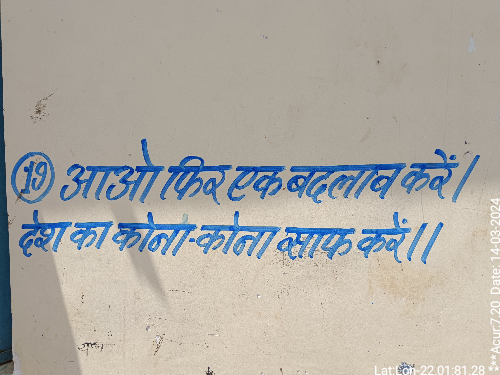 19 आओ फिर एक बदलाव करें।
देश का कोना-कोना साफ करें।।
Lat:Lon-22.01:81.28
***Acur7.20 Date : 14-03-2024